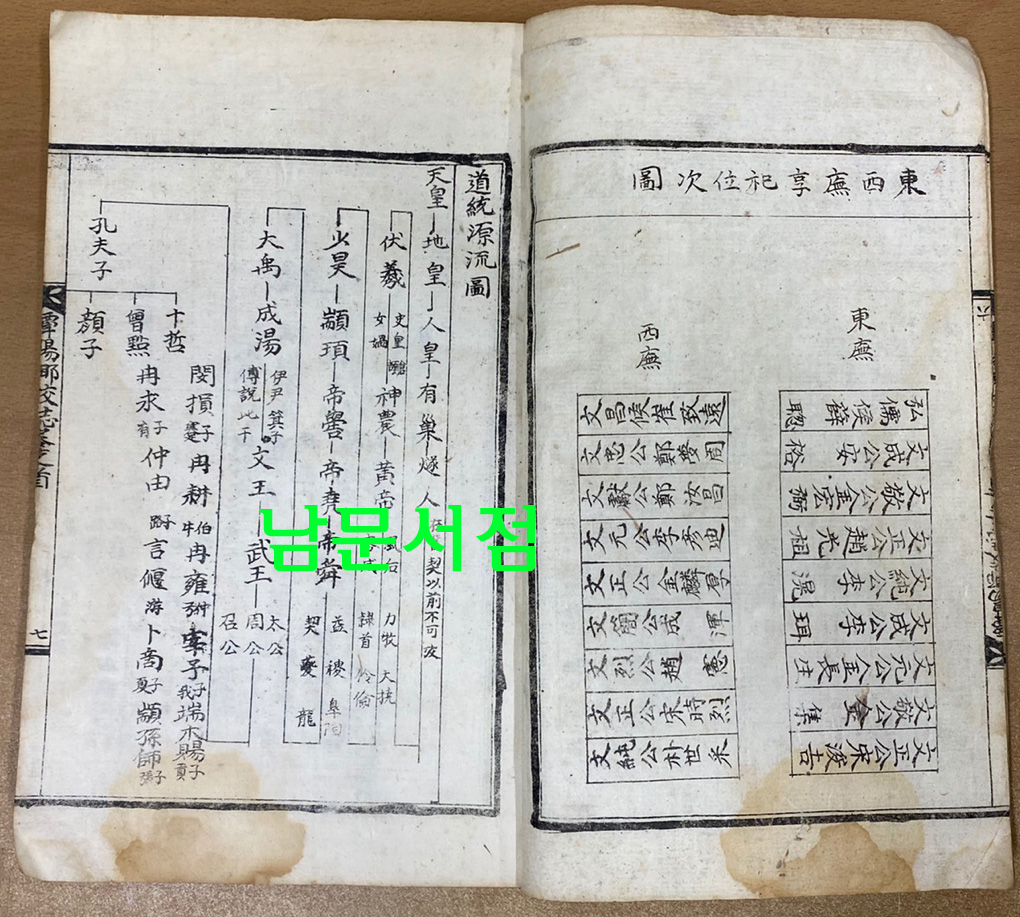 東西廡享祀位次圖
東廡
弘儒侯薛聰
文成公安裕
文敬公金宏弼
文正公趙光祖
文純公李滉
文成公李珥
文元公金長生
文敬公金集
文正公宋浚吉
西廡
文昌侯崔致遠
文忠公鄭夢周
文獻公鄭汝昌
文元公李彦迪
文正公金麟厚
文簡公成渾
文烈公趙憲
文正公宋時烈
文純公朴世采
六
道統源流圖
天皇 地皇 人皇 有巢 燧人 契以前不可攷
伏羲 史皇 女媧 神農 黃帝 風后 力牧 大撓 隸首 伶倫
少昊 顓頊 帝嚳 帝堯 帝舜 益 稷 皐陶 契 夔 龍
大禹 成湯 伊尹 箕子 傅說 比干 文王 武王 太公 周公 召公
孔夫子
十哲
曾點
顏子
閔損 子騫 冉耕 伯牛 冉雍 宰予 子我 端木賜 子貢
冉求 子有 仲由 子路 言偃 子游 卜商 子夏 顓孫師 子張
潭陽鄕校誌卷之首
七
남문서점